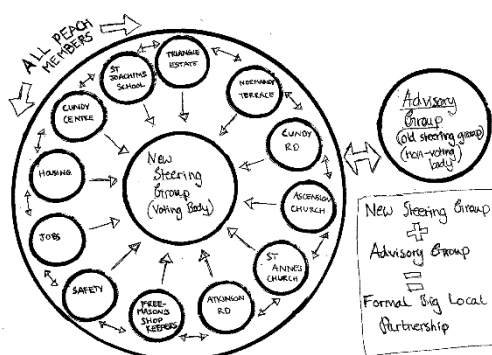 ALL PEACH
MEMBERS
TRIANGLE
ESTATE
NORMANDY
TERRACE
CUNDY
RD
ASCENSION
CHURCH
ST
ANNES
CHURCH
ATKINSON
RD
FREE-
MASONS
SHOP
KEEPERS
SAFETY
JOBS
HOUSING
CUNDY
CENTRE
ST
JOACHIMS
SCHOOL
New
Steering
Group
(Voting Body)
Advisory
Group
(old steering group)
(non-voting)
body
New Steering Group
+
Advisory Group
=
Formal Big Local
Partnership